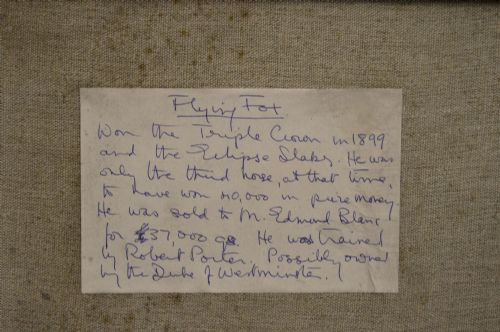 Flying Fox
Won the Triple Crown in 1899
and the Eclipse Stakes. He was
only the third horse, at that time,
to have won 40,000 in prize money
He was sold to M. Edmond Blanc
for £37,000 gs. He was trained
by Robert Porter. Possibly owned
by the Duke of Westminster.